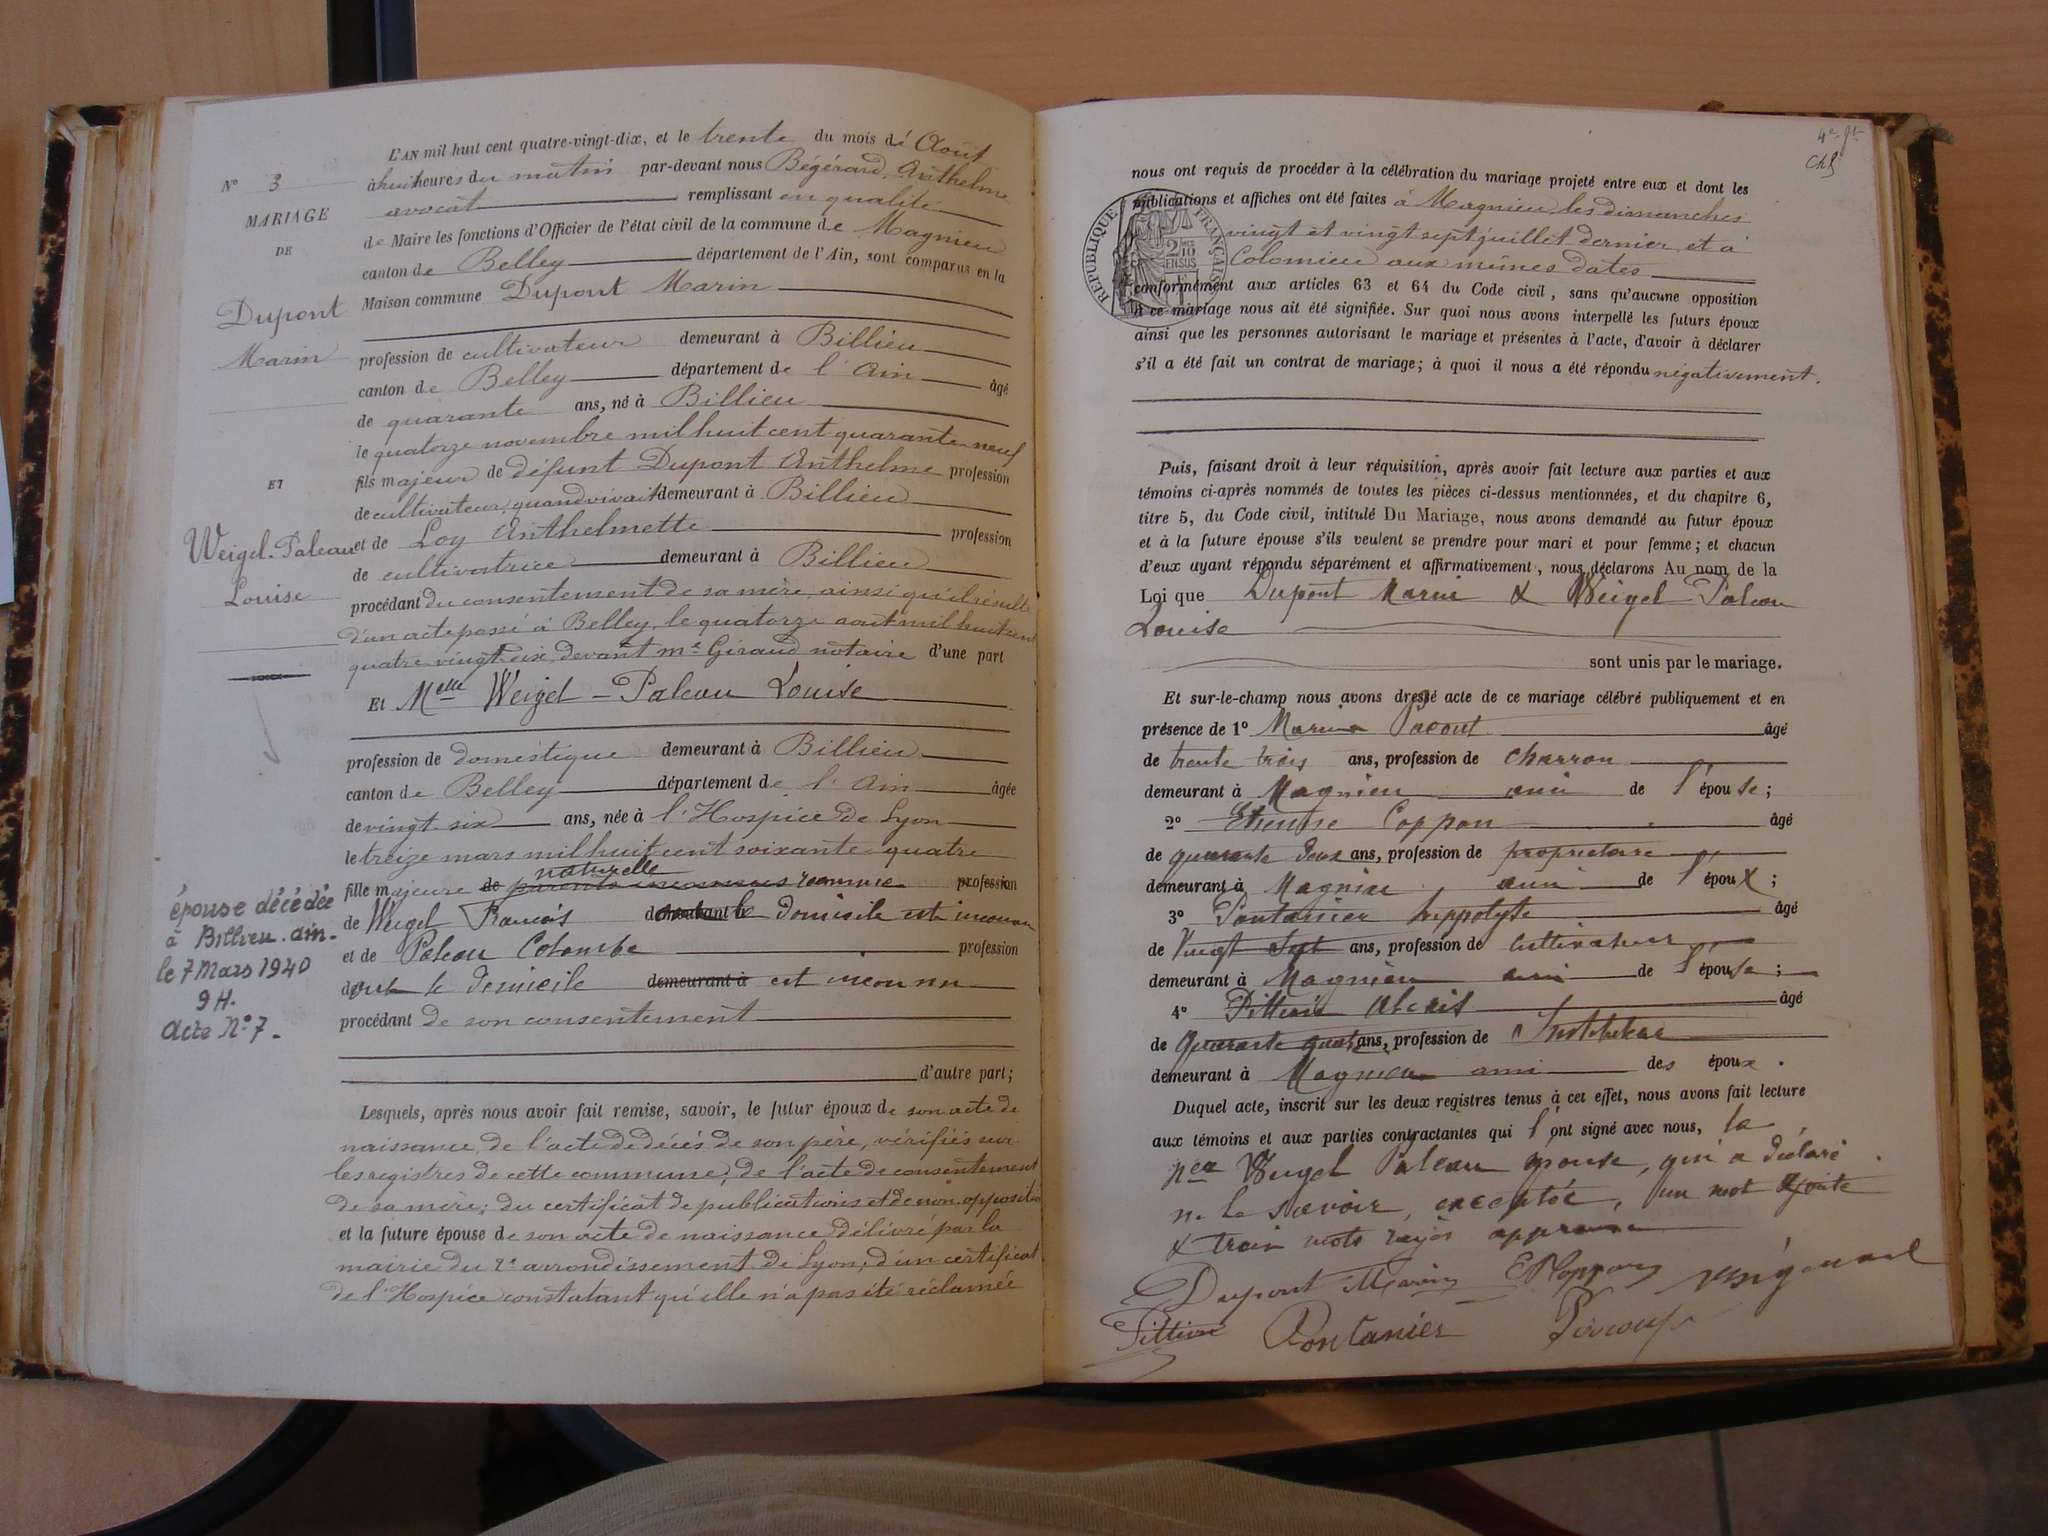 N° 3
MARIAGE
DE
Dupont
Marin
ET
Weigel-Paleau
Louise
épouse décédée
à Billieu. ain.
le 7 Mars 1940
9 H.
Acte N° 7.
L'AN mil huit cent quatre-vingt-dix, et le trente du mois de Août
à huit heures du matin par-devant nous Bégérard, Anthelme
avocat remplissant en qualité
de Maire les fonctions d'Officier de l'état civil de la commune de Magnieu
canton de Belley département de l'Ain, sont comparus en la
Maison commune Dupont Marin
profession de cultivateur demeurant à Billieu
canton de Belley département de l'Ain âgé
de quarante ans, né à Billieu
le quatorze novembre mil huit cent quarante neuf
fils majeur de défunt Dupont Anthelme profession
de cultivateur, quand vivait demeurant à Billieu
et de Loy Anthelmette profession
de cultivatrice demeurant à Billieu
procédant du consentement de sa mère, ainsi qu'il résulte
d'un acte passé à Belley, le quatorze août mil huit cent
quatre vingt dix, devant me Giraud notaire d'une part
Et Melle Weigel-Paleau Louise
profession de domestique demeurant à Billieu
canton de Belley département de l'Ain âgée
de vingt six ans, née à l'Hospice de Lyon
le treize mars mil huit cent soixante quatre
naturelle
fille majeure de parents inconnus reconnue profession
de Weigel François demeurant le domicile est inconnu
et de Paleau Colombe profession
dont le domicile demeurant à est inconnu
procédant de son consentement
d'autre part;
Lesquels, après nous avoir fait remise, savoir, le futur époux de son acte de
naissance, de l'acte de décès de son père, vérifiés sur
les registres de cette commune, de l'acte de consentement
de sa mère; du certificat de publications et de non opposition
et la future épouse de son acte de naissance délivré par la
mairie du 2e arrondissement de Lyon, d'un certificat
de l'Hospice constatant qu'elle n'a pas été réclamée
4e ft
nous ont requis de procéder à la célébration du mariage projeté entre eux et dont les
publications et affiches ont été faites à Magnieu, les dimanches
vingt et vingt sept juillet dernier et à
Colomieu aux mêmes dates
RÉPUBLIQUE FRANÇAISE
2/10
EN SUS
conformément aux articles 63 et 64 du Code civil, sans qu'aucune opposition
à ce mariage nous ait été signifiée. Sur quoi nous avons interpellé les futurs époux
ainsi que les personnes autorisant le mariage et présentes à l'acte, d'avoir à déclarer
s'il a été fait un contrat de mariage; à quoi il nous a été répondu négativement.
Puis, faisant droit à leur réquisition, après avoir fait lecture aux parties et aux
témoins ci-après nommés de toutes les pièces ci-dessus mentionnées, et du chapitre 6,
titre 5, du Code civil, intitulé Du Mariage, nous avons demandé au futur époux
et à la future épouse s'ils veulent se prendre pour mari et pour femme; et chacun
d'eux ayant répondu séparément et affirmativement, nous déclarons Au nom de la
Loi que Dupont Marin & Weigel-Paleau
Louise
sont unis par le mariage.
Et sur-le-champ nous avons dressé acte de ce mariage célébré publiquement et en
présence de 1° Marin âgé
de trente trois ans, profession de charron
demeurant à Magnieu ami de l'épouse;
2° Etienne Coppon âgé
de quarante deux ans, profession de propriétaire
demeurant à Magnieu, ami de l'époux;
3° Pontanier hippolyte âgé
de Vingt Sept ans, profession de cultivateur
demeurant à Magnieu ami de l'épouse;
4° Pittion Alexis âgé
de Quarante quatre ans, profession de Instituteur
demeurant à Magnieu ami des époux.
Duquel acte, inscrit sur les deux registres tenus à cet effet, nous avons fait lecture
aux témoins et aux parties contractantes qui l'ont signé avec nous, la
née Weigel Paleau épouse, qui a déclaré
ne le savoir, exceptée, un mot ajouté
& trois mots rayés approuvé
Dupont Marin Coppon
Pittion Pontanier